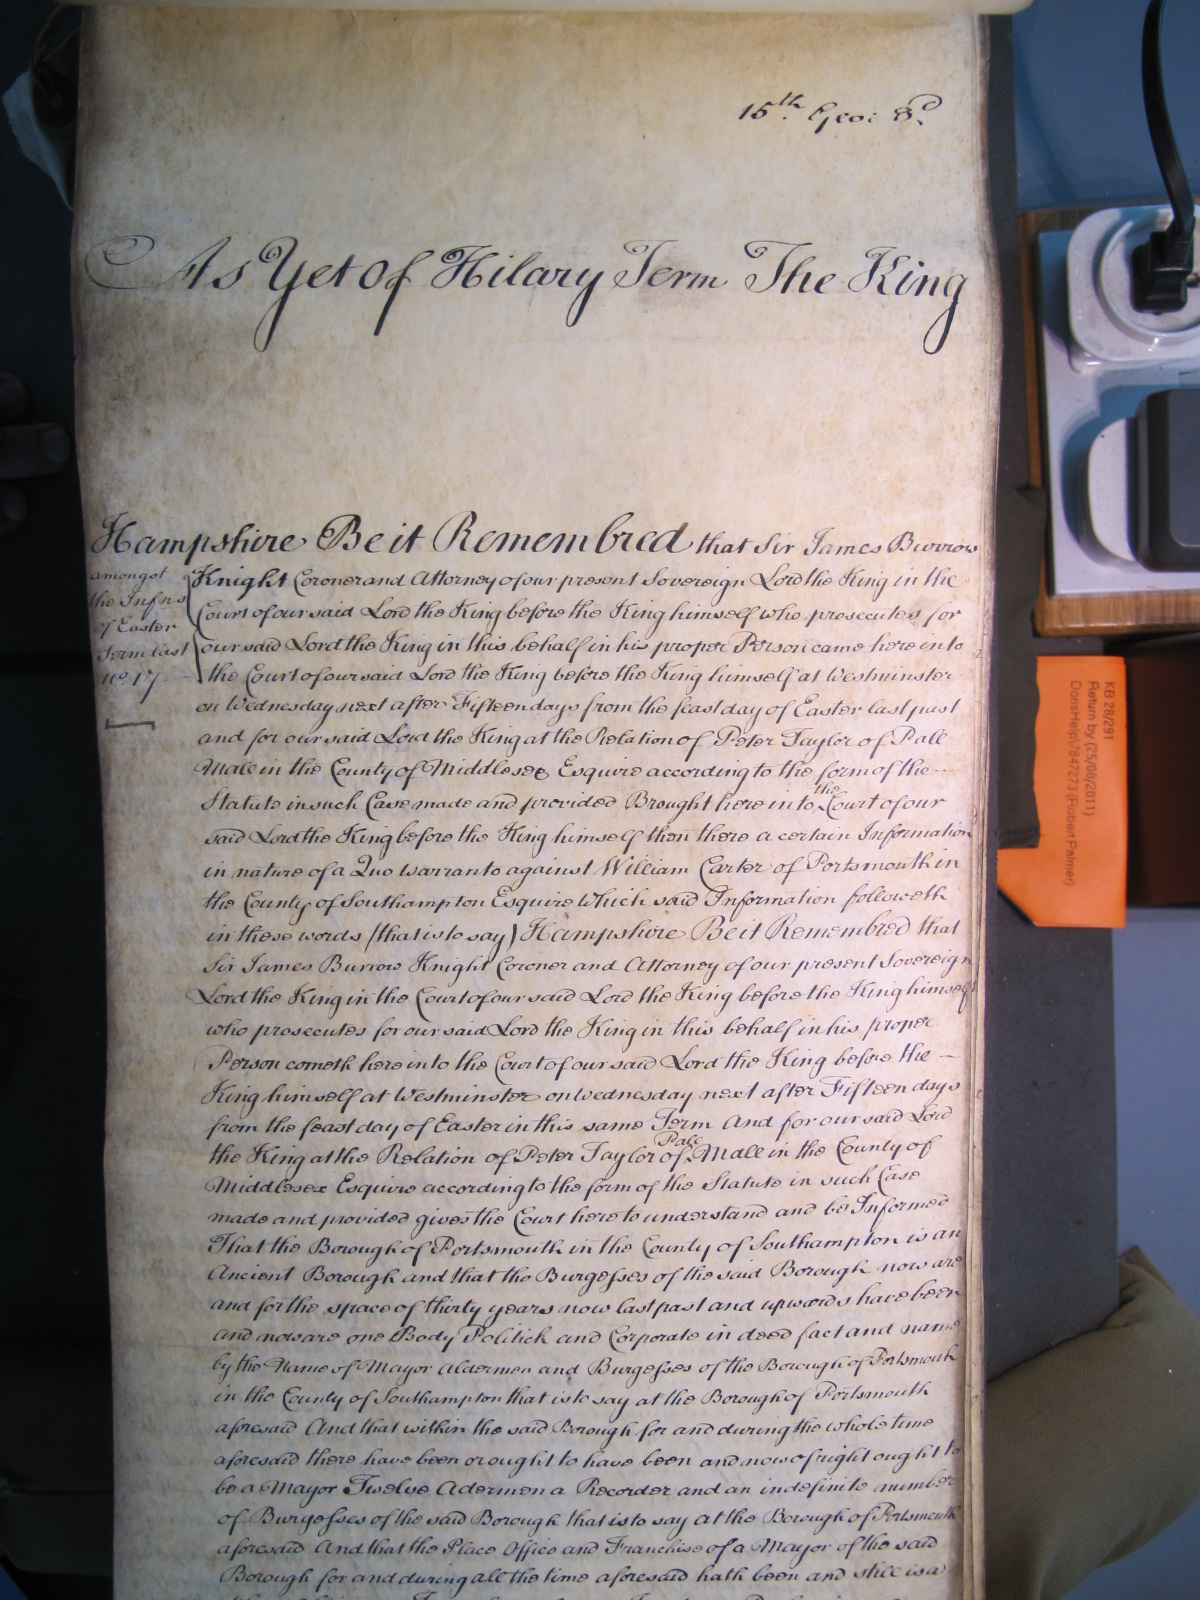 15th. Geo: 3d.
As Yet Of Hilary Term The King
Hampshire Be it Remembred that Sir James Burrow
amongst
the Infns
of Easter
Term last
no. 17
Knight Coroner and Attorney of our present Sovereign Lord the King in the
Court of our said Lord the King before the King himself who prosecutes for
our said Lord the King in this behalf in his proper Person came here into
the Court of our said Lord the King before the King himself at Westminster
on Wednesday next after Fifteen days from the feast day of Easter last past
and for our said Lord the King at the Relation of Peter Taylor of Pall
Mall in the County of Middlesex Esquire according to the form of the
Statute in such Case made and provided Brought here into the Court of our
said Lord the King before the King himself then there a certain Information
in nature of a Quo Warranto against William Carter of Portsmouth in
the County of Southampton Esquire Which said Information followeth
in these words (that is to say) Hampshire Be it Remembred that
Sir James Burrow Knight Coroner and Attorney of our present Sovereign
Lord the King in the Court of our said Lord the King before the King himself
who prosecutes for our said Lord the King in this behalf in his proper
Person cometh here into the Court of our said Lord the King before the
King himself at Westminster on Wednesday next after Fifteen days
from the feast day of Easter in this same Term And for our said Lord
the King at the Relation of Peter Taylor of Pall Mall in the County of
Middlesex Esquire according to the form of the Statute in such Case
made and provided gives the Court here to understand and be Informed
That the Borough of Portsmouth in the County of Southampton is an
Ancient Borough and that the Burgesses of the said Borough now are
and for the space of thirty years now last past and upwards have been
and now are one Body Politick and Corporate in deed fact and name
by the Name of Mayor Aldermen and Burgesses of the Borough of Portsmouth
in the County of Southampton that is to say at the Borough of Portsmouth
aforesaid And that within the said Borough for and during the whole time
aforesaid there have been or ought to have been and now of right ought to
be a Mayor Twelve Adermen a Recorder and an indefinite number
of Burgesses of the said Borough that is to say at the Borough of Portsmouth
aforesaid And that the Place Office and Franchise of a Mayor of the said
Borough for and during all the time aforesaid hath been and still is a
KB 28/291
Return by (25/08/2011)
DonsHelp7847273 (Robert Palmer)